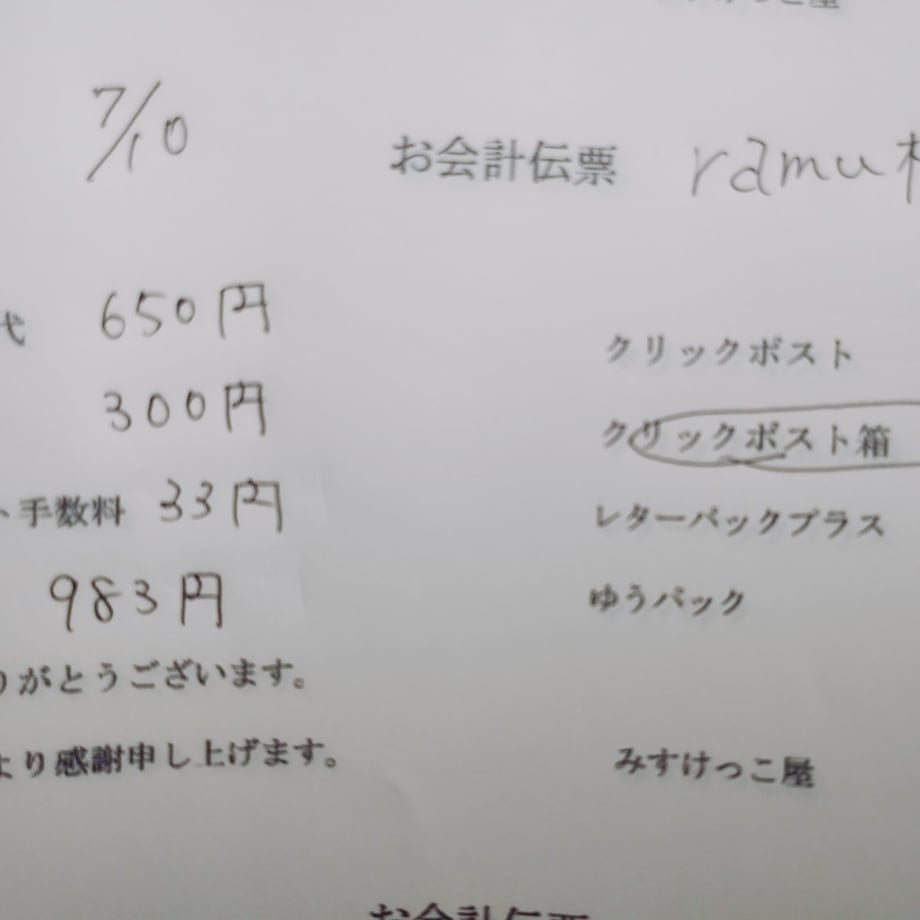 7/10 お会計伝票 ramu
代 650円
クリックポスト
300円
クリックポスト箱
手数料 33円
レターパックプラス
983円
ゆうパック
りがとうございます。
より感謝申し上げます。
みすけっこ屋
お会計伝票